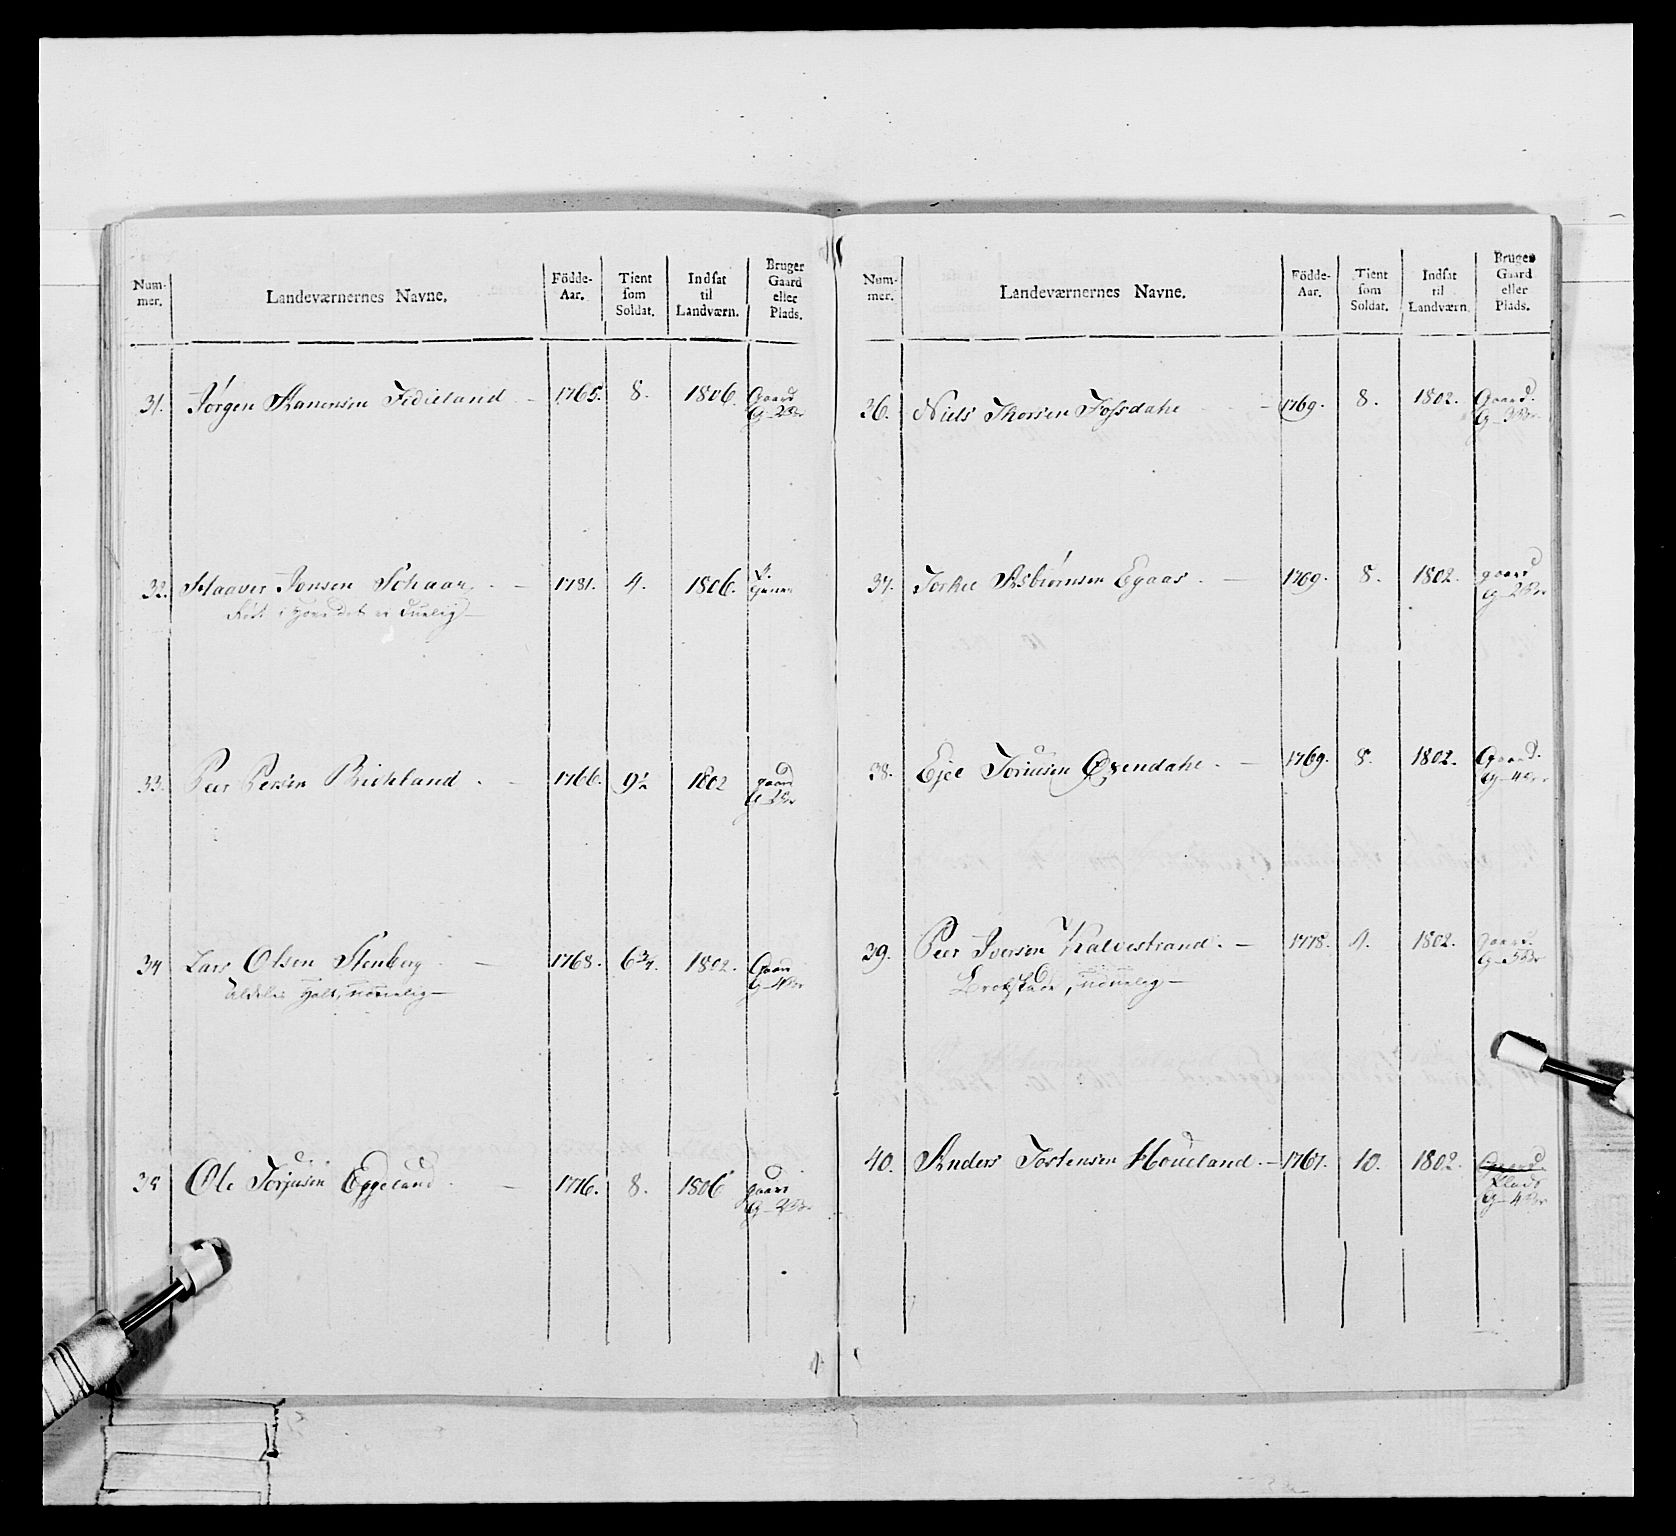 Num-
mer.
Landeværnernes Navne.
Födde-
Aar.
Tient
som
Soldat.
Indsat
til
Landværn.
Bruger
Gaard
eller
Plads.
31. Jörgen Hanensen Fedieland 1765. 8. 1806. Gaard
32. Haaver Jonsen Schaar 1781. 4. 1806.
33. Peer Persen Birkeland 1766. 9½ 1802 gaard
34 Lars Olsen Stenberg 1768. 6¾. 1802. Gaard
udulig
35 Ole Torjusen Eggeland 1776. 8. 1806 gaard
Num-
mer.
Landeværnernes Navne.
Födde-
Aar.
Tient
som
Soldat.
Indsat
til
Landværn.
Bruger
Gaard
eller
Plads.
36. Niels Thorsen Fossdahl 1769. 8. 1802. Gaard.
37. Torkel Asbiörnsen Egaas 1769. 8. 1802. gaard
38. Ejel Toriusen Öxendahl 1769. 8. 1802. Gaard.
39. Peer Iversen Kalvestrand 1778. 4. 1802. gaard.
Brokskade, udulig
40. Anders Tostensen Houeland 1767. 10. 1802. Gaard.
Plads